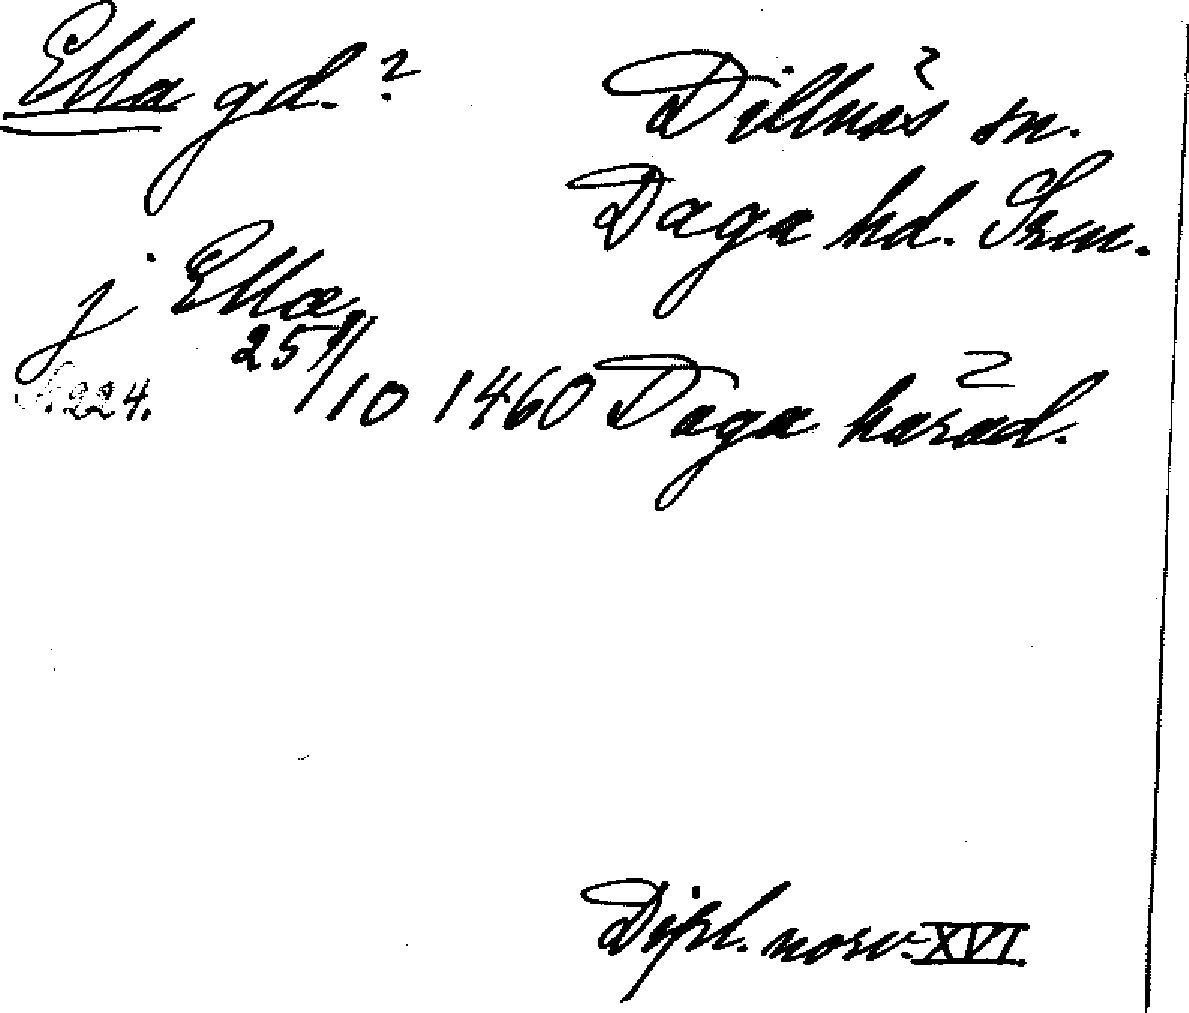 Ella gd.?
Dillnäs sn.
Daga hd. Srm.
j Ella
25 9/10 1460 Daga härad.
S. 224.
Dipl. norv. XVI.